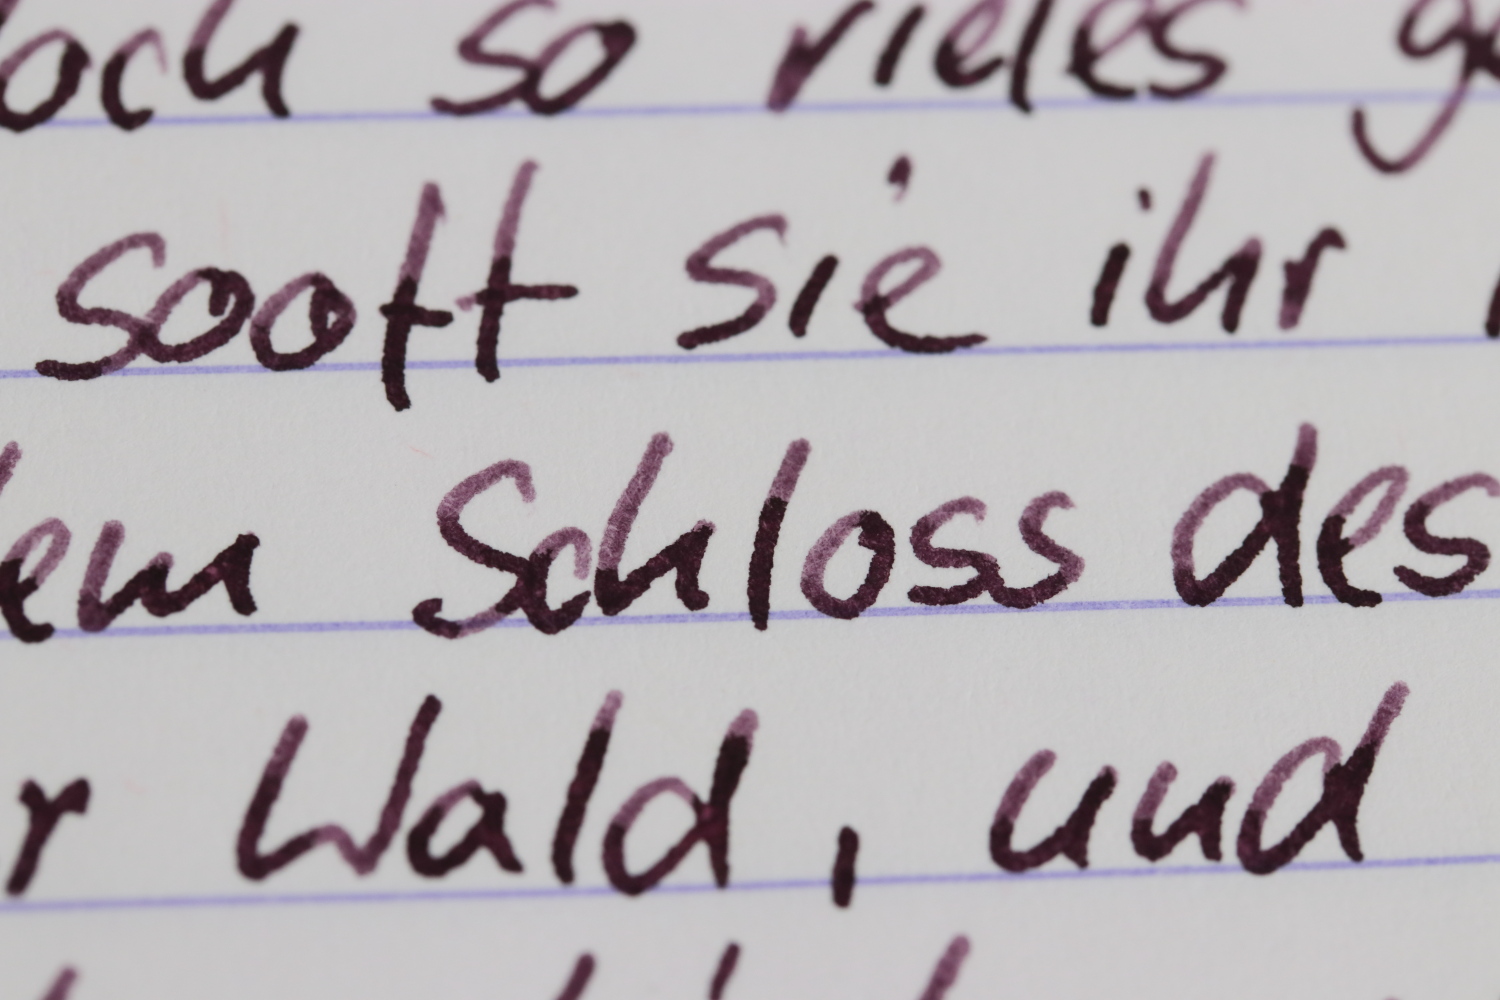 doch so vieles
sooft sie ihr
dem Schloss des
Wald, und